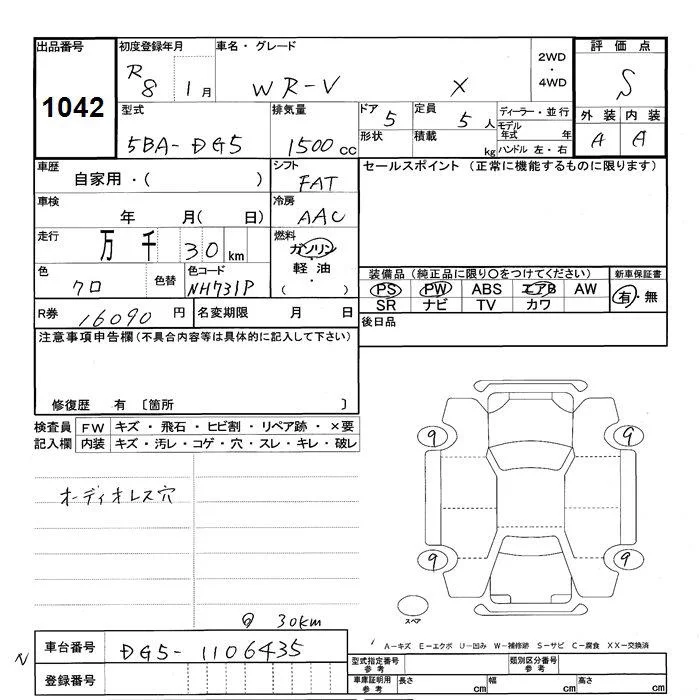 出品番号
1042
初度登録年月
R8 1月
車名・グレード
WR-V X
2WD
・
4WD
評価点
S
外装 内装
A A
型式
5BA-DG5
排気量
1500 cc
ドア
5
形状
定員
5人
積載
kg
ディーラー・並行
モデル
年式 年
ハンドル 左・右
車歴
自家用・( )
シフト
FAT
車検
年 月( 日)
冷房
AAC
走行
万 千 30 km
燃料
ガソリン
軽油
( )
色
クロ
色替
色コード
NH731P
R券
16090 円
名変期限 月 日
セールスポイント (正常に機能するものに限ります)
装備品 (純正品に限り○をつけてください)
PS PW ABS エアB AW
SR ナビ TV カワ
新車保証書
有・無
後日品
注意事項申告欄 (不具合内容等は具体的に記入して下さい)
修復歴 有 〔箇所 〕
検査員
記入欄
FW キズ・飛石・ヒビ割・リペア跡・×要
内装 キズ・汚レ・コゲ・穴・スレ・キレ・破レ
オーディオレス穴
30km
9 9
9 9
スペア
車台番号
DG5-1106435
登録番号
N
A―キズ E―エクボ U―凹み W―補修跡 S―サビ C―腐食 XX―交換済
型式指定番号
参考
類別区分番号
参考
車庫証明用
参考
長さ cm
幅 cm
高さ cm